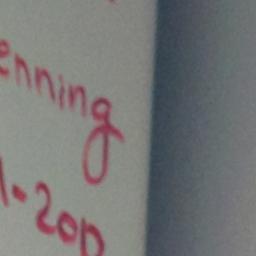 enning
1-20p